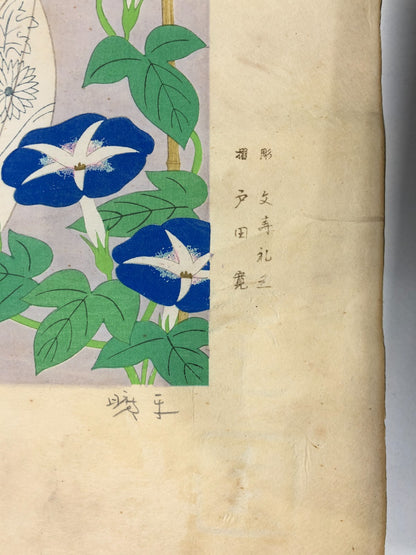 彫 文寿礼三
摺 戸田寛